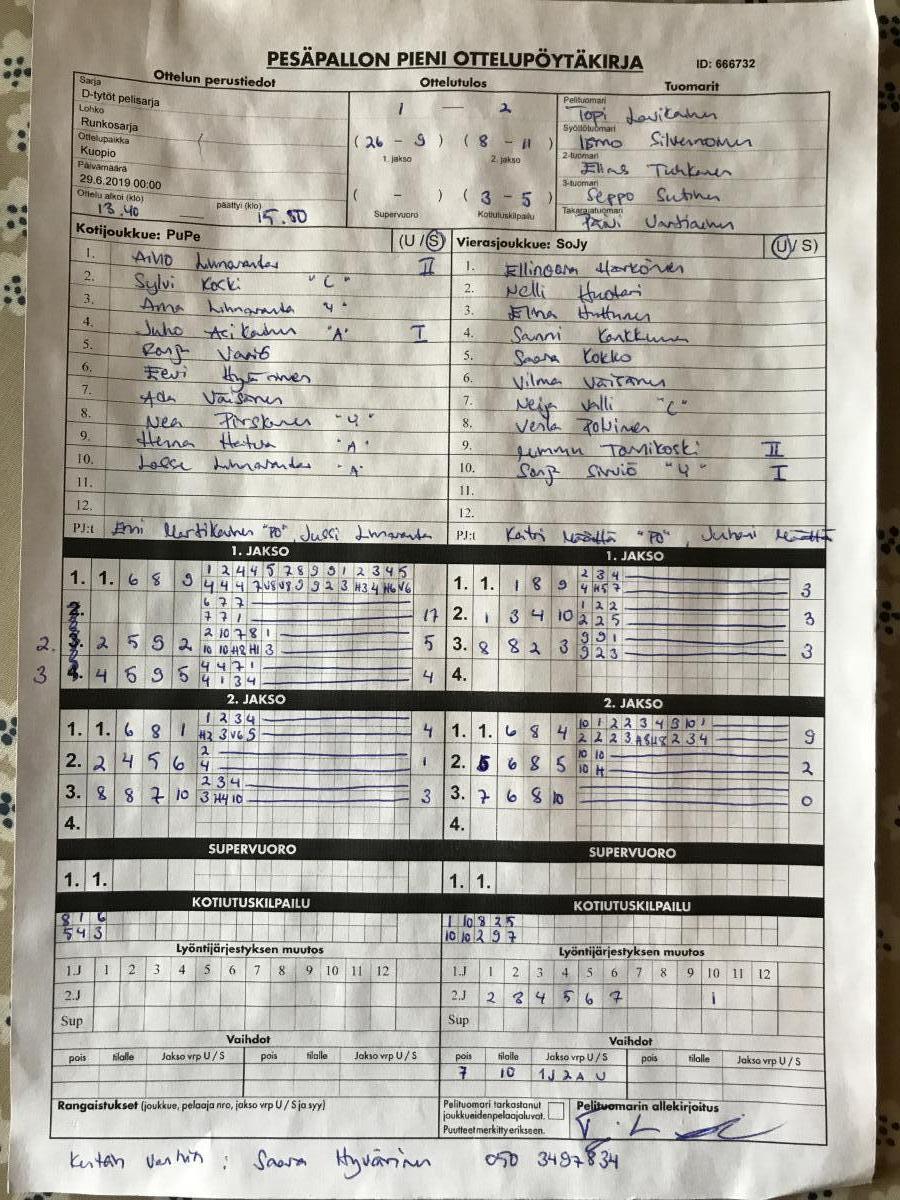 PESÄPALLON PIENI OTTELUPÖYTÄKIRJA ID: 666732
Ottelun perustiedot
Sarja
D-tytöt pelisarja
Lohko
Runkosarja
Ottelupaikka
Kuopio
Päivämäärä
29.6.2019 00:00
Ottelu alkoi (klo) 13.40 päättyi (klo) 15.50
Ottelutulos
1 — 2
(26 - 9) (8 - 11)
1. jakso 2. jakso
( - ) (3 - 5)
Supervuoro Kotiutuskilpailu
Tuomarit
Pelituomari
Topi
Syöttötuomari
Ismo
2-tuomari
Elias
3-tuomari
Seppo Sutinen
Takarajatuomari
Päivi Vantiainen
Kotijoukkue: PuPe (U / S)
1. Linnavanta II
2. Sylvi Koski "C"
3. Anna
4. Juho "A" I
5.
6. Eevi Hyvärinen
7. Ada Väisänen
8. Nea
9. Henna "A"
10. Lasse "A"
11.
12.
PJ:t Martikainen "PO", Jussi
Vierasjoukkue: SoJy (U / S)
1. Ellinoora Harkönen
2. Nelli Huotari
3. Elina Huttunen
4. Sanni Karkkunen
5. Saara Kokko
6. Vilma Väisänen
7. Neija Valli "C"
8. Verla Polvinen
9. Tarnikoski II
10. Sirviö I
11.
12.
PJ:t Katri Määttä "PO", Juhani Määttä
1. JAKSO
1. 1. 6 8 9 1 2 4 4 5 7 8 9 9 1 2 3 4 5
4 4 4 7 V8 V8 9 9 2 3 H3 4 H6 V6
6 7 7
7 7 1 17
2. 2 5 9 2 2 10 7 8 1
10 10 H8 H1 3 5
3 4 5 9 5 4 4 7 1
4 1 3 4 4
1. JAKSO
1. 1. 1 8 9 2 3 4
4 H5 7 3
2. 1 3 4 10 1 2 2
2 2 5 3
3. 8 8 2 3 9 9 1
9 2 3 3
4.
2. JAKSO
1. 1. 6 8 1 1 2 3 4
H2 3 V6 5 4
2. 2 4 5 6 2
4 1
3. 8 8 7 10 2 3 4
3 H4 10 3
4.
2. JAKSO
1. 1. 6 8 4 10 1 2 2 3 4 9 10 1
2 2 2 3 H8 H8 2 3 4 9
2. 5 6 8 5 10 10
10 H 2
3. 7 6 8 10 0
4.
SUPERVUORO
1. 1.
SUPERVUORO
1. 1.
KOTIUTUSKILPAILU
8 1 6
5 4 3
KOTIUTUSKILPAILU
1 10 8 2 5
10 10 2 9 7
Lyöntijärjestyksen muutos
1.J 1 2 3 4 5 6 7 8 9 10 11 12
2.J
Sup
Lyöntijärjestyksen muutos
1.J 1 2 3 4 5 6 7 8 9 10 11 12
2.J 2 3 4 5 6 7 1
Sup
Vaihdot
pois tilalle Jakso vrp U / S pois tilalle Jakso vrp U / S
Vaihdot
pois tilalle Jakso vrp U / S pois tilalle Jakso vrp U / S
7 10 1J 2A U
Rangaistukset (joukkue, pelaaja nro, jakso vrp U / S ja syy)
Pelituomari tarkastanut
joukkueiden pelaajaluvat.
Puutteet merkitty erikseen.
Pelituomarin allekirjoitus
: Saara Hyvärinen 050 3497834